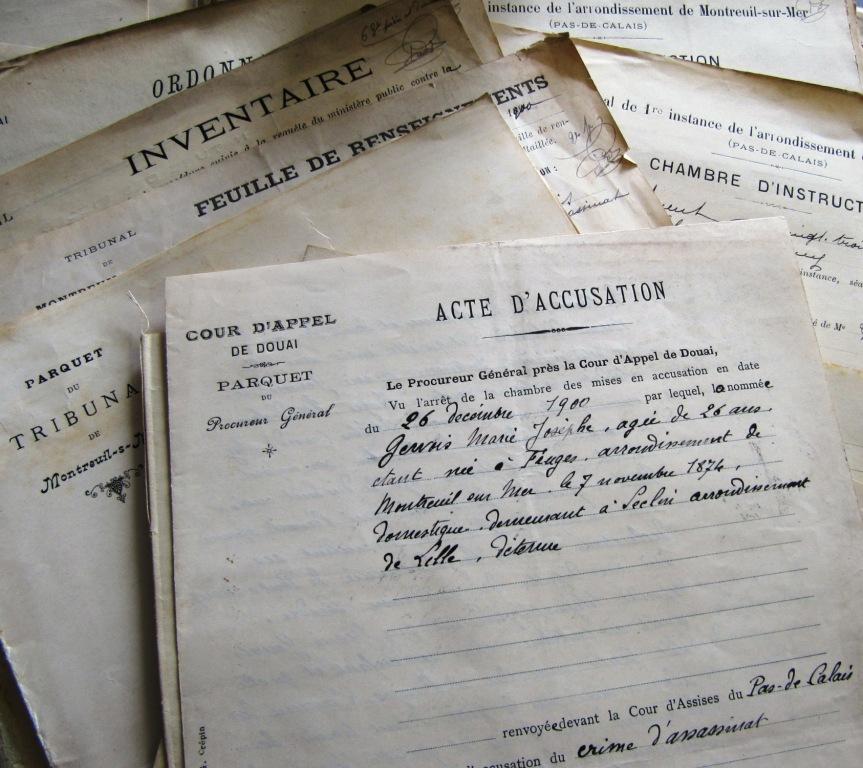 instance de l'arrondissement de Montreuil-sur-Mer
(PAS-DE-CALAIS)
ORDONN
INVENTAIRE
suivie à la requête du ministère public contre la
FEUILLE DE RENSEIGNEMENTS
1900
al de 1re instance de l'arrondissement
(PAS-DE-CALAIS)
CHAMBRE D'INSTRUCT
instance, séa
TRIBUNAL
DE
MONTREUIL
PARQUET
DU
TRIBUNA
DE
Montreuil-s-M
COUR D'APPEL
DE DOUAI
PARQUET
DU
Procureur Général
ACTE D'ACCUSATION
Le Procureur Général près la Cour d'Appel de Douai,
Vu l'arrêt de la chambre des mises en accusation en date
du 26 decembre 1900 par lequel, la nommée
Gervois Marie Josephe, agée de 26 ans
étant née à Fruges, arrondissement de
Montreuil sur Mer, le 7 novembre 1874,
domestique, demeurant à Seclin arrondissement
de Lille, détenue
renvoyée devant la Cour d'Assises du Pas-de Calais
accusation du crime d'assassinat
Crépin